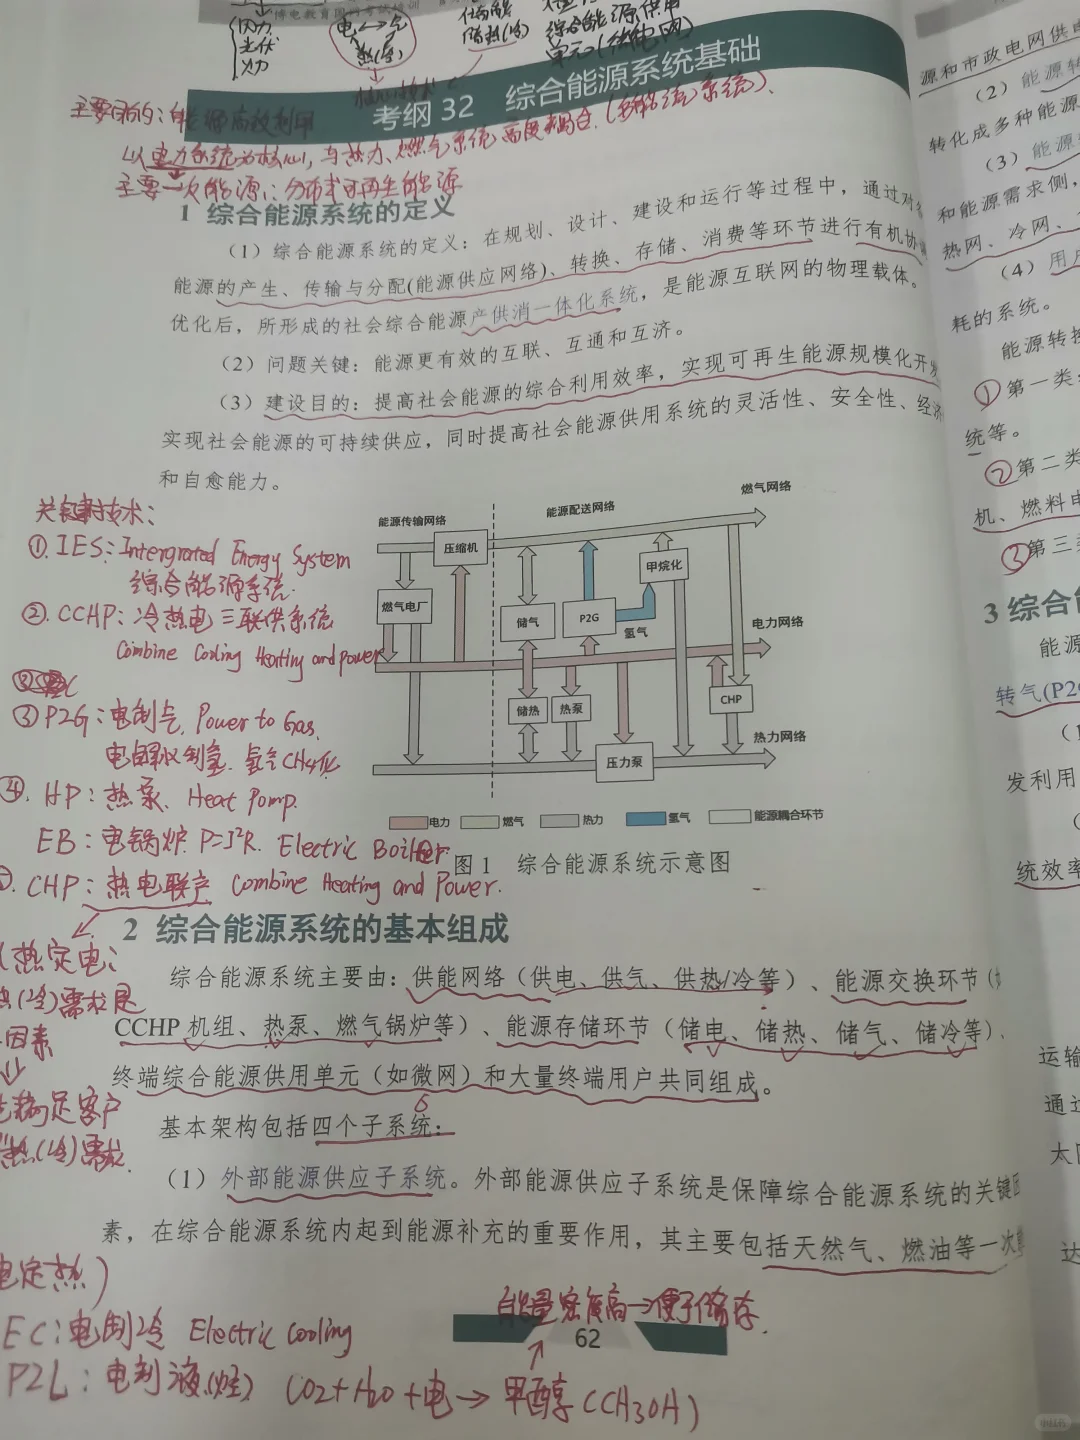 博电教育国网考试培训
风力
光伏
火力
电
热(冷)
储热(冷)
综合能源供用
单元(供电网)
考纲 32 综合能源系统基础
主要目的：能源高效利用
以电力系统为核心，与热力、燃气系统高度耦合.(多能流系统).
主要一次能源：分布式可再生能源
1 综合能源系统的定义
（1）综合能源系统的定义：在规划、设计、建设和运行等过程中，通过对
能源的产生、传输与分配(能源供应网络)、转换、存储、消费等环节进行有机协
优化后，所形成的社会综合能源产供消一体化系统，是能源互联网的物理载体。
（2）问题关键：能源更有效的互联、互通和互济。
（3）建设目的：提高社会能源的综合利用效率，实现可再生能源规模化开发
实现社会能源的可持续供应，同时提高社会能源供用系统的灵活性、安全性、经济
和自愈能力。
关键技术：
①. IES：Intergrated Energy System
综合能源系统.
②. CCHP：冷热电三联供系统
Combine Cooling Heating and power
③ P2G：电制气. Power to Gas.
电解水制氢. 氢气CH4化
④. HP：热泵. Heat Pomp.
EB：电锅炉. P=I²R. Electric Boiler.
CHP：热电联产 Combine Heating and Power.
能源传输网络
能源配送网络
燃气网络
压缩机
甲烷化
燃气电厂
储气
P2G
氢气
电力网络
储热
热泵
CHP
压力泵
热力网络
电力
燃气
热力
氢气
能源耦合环节
图 1 综合能源系统示意图
2 综合能源系统的基本组成
热定电：
(冷)需求是
因素
满足客户
热(冷)需求.
综合能源系统主要由：供能网络（供电、供气、供热/冷等）、能源交换环节（
CCHP 机组、热泵、燃气锅炉等）、能源存储环节（储电、储热、储气、储冷等）、
终端综合能源供用单元（如微网）和大量终端用户共同组成。
基本架构包括四个子系统：
（1）外部能源供应子系统。外部能源供应子系统是保障综合能源系统的关键因
素，在综合能源系统内起到能源补充的重要作用，其主要包括天然气、燃油等一次
电定热)
EC：电制冷 Electric Cooling
能量密度高→便于储存.
62
P2L：电制液(烃) CO2+H2O+电→甲醇(CH3OH)
源和市政电网供电
（2）能源转
转化成多种能源
（3）能源
和能源需求侧，
热网、冷网、
（4）用户
耗的系统。
能源转换
① 第一类：
统等。
② 第二类
机、燃料电
③ 第三类
3 综合能
能源
转气(P2G
发利用
统效率
运输
通过
太阳
达
小红书